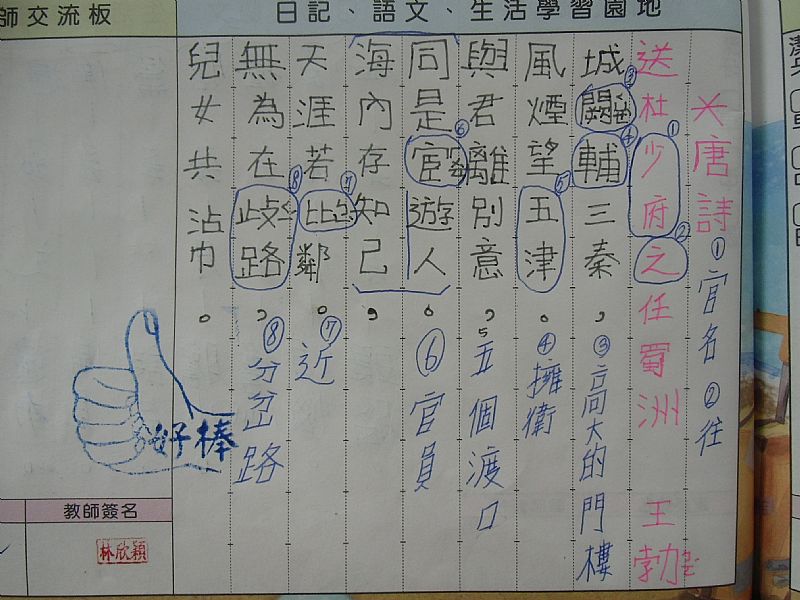 日記、語文、生活學習園地
師交流板
※唐詩 ①官名 ②往
送杜少府之任蜀洲 王勃
城闕輔三秦, ③高大的門樓
風煙望五津。 ④擁衛
與君離別意, 5五個渡口
同是宦遊人。 ⑥官員
海內存知己,
天涯若比鄰。 ⑦近
無為在歧路, ⑧分岔路
兒女共沾巾。
好棒
教師簽名
林欣穎